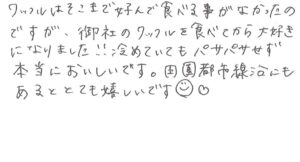 ワッフルはそこまで好んで食べる事がなかったの
ですが、御社のワッフルを食べてから大好き
になりました!!冷めていてもパサパサせず
本当においしいです。田園都市線沿にも
あるととても嬉しいです☺♡